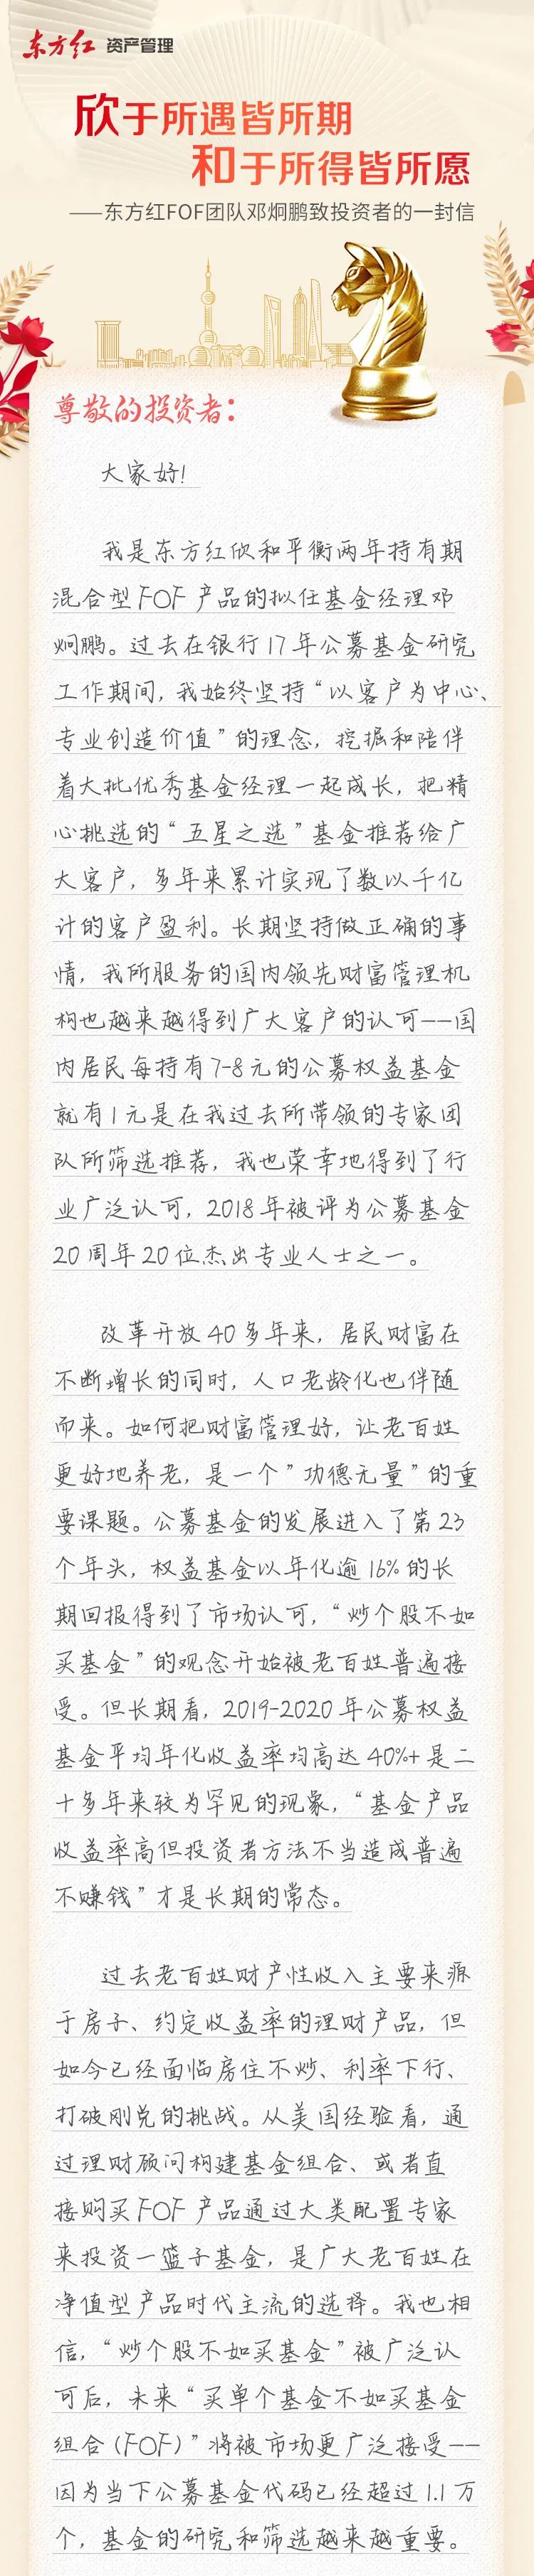 东方红 资产管理
欣于所遇皆所期
和于所得皆所愿
——东方红FOF团队邓炯鹏致投资者的一封信
尊敬的投资者：
大家好！
我是东方红欣和平衡两年持有期
混合型FOF产品的拟任基金经理邓
炯鹏。过去在银行17年公募基金研究
工作期间，我始终坚持“以客户为中心、
专业创造价值”的理念，挖掘和陪伴
着大批优秀基金经理一起成长，把精
心挑选的“五星之选”基金推荐给广
大客户，多年来累计实现了数以千亿
计的客户盈利。长期坚持做正确的事
情，我所服务的国内领先财富管理机
构也越来越得到广大客户的认可——国
内居民每持有7-8元的公募权益基金
就有1元是在我过去所带领的专家团
队所筛选推荐，我也荣幸地得到了行
业广泛认可，2018年被评为公募基金
20周年20位杰出专业人士之一。
改革开放40多年来，居民财富在
不断增长的同时，人口老龄化也伴随
而来。如何把财富管理好，让老百姓
更好地养老，是一个”功德无量”的重
要课题。公募基金的发展进入了第23
个年头，权益基金以年化逾16%的长
期回报得到了市场认可，“炒个股不如
买基金”的观念开始被老百姓普遍接
受。但长期看，2019-2020年公募权益
基金平均年化收益率均高达40%+是二
十多年来较为罕见的现象，“基金产品
收益率高但投资者方法不当造成普遍
不赚钱”才是长期的常态。
过去老百姓财产性收入主要来源
于房子、约定收益率的理财产品，但
如今已经面临房住不炒、利率下行、
打破刚兑的挑战。从美国经验看，通
过理财顾问构建基金组合、或者直
接购买FOF产品通过大类配置专家
来投资一篮子基金，是广大老百姓在
净值型产品时代主流的选择。我也相
信，“炒个股不如买基金”被广泛认
可后，未来“买单个基金不如买基金
组合(FOF)”将被市场更广泛接受——
因为当下公募基金代码已经超过1.1万
个，基金的研究和筛选越来越重要。